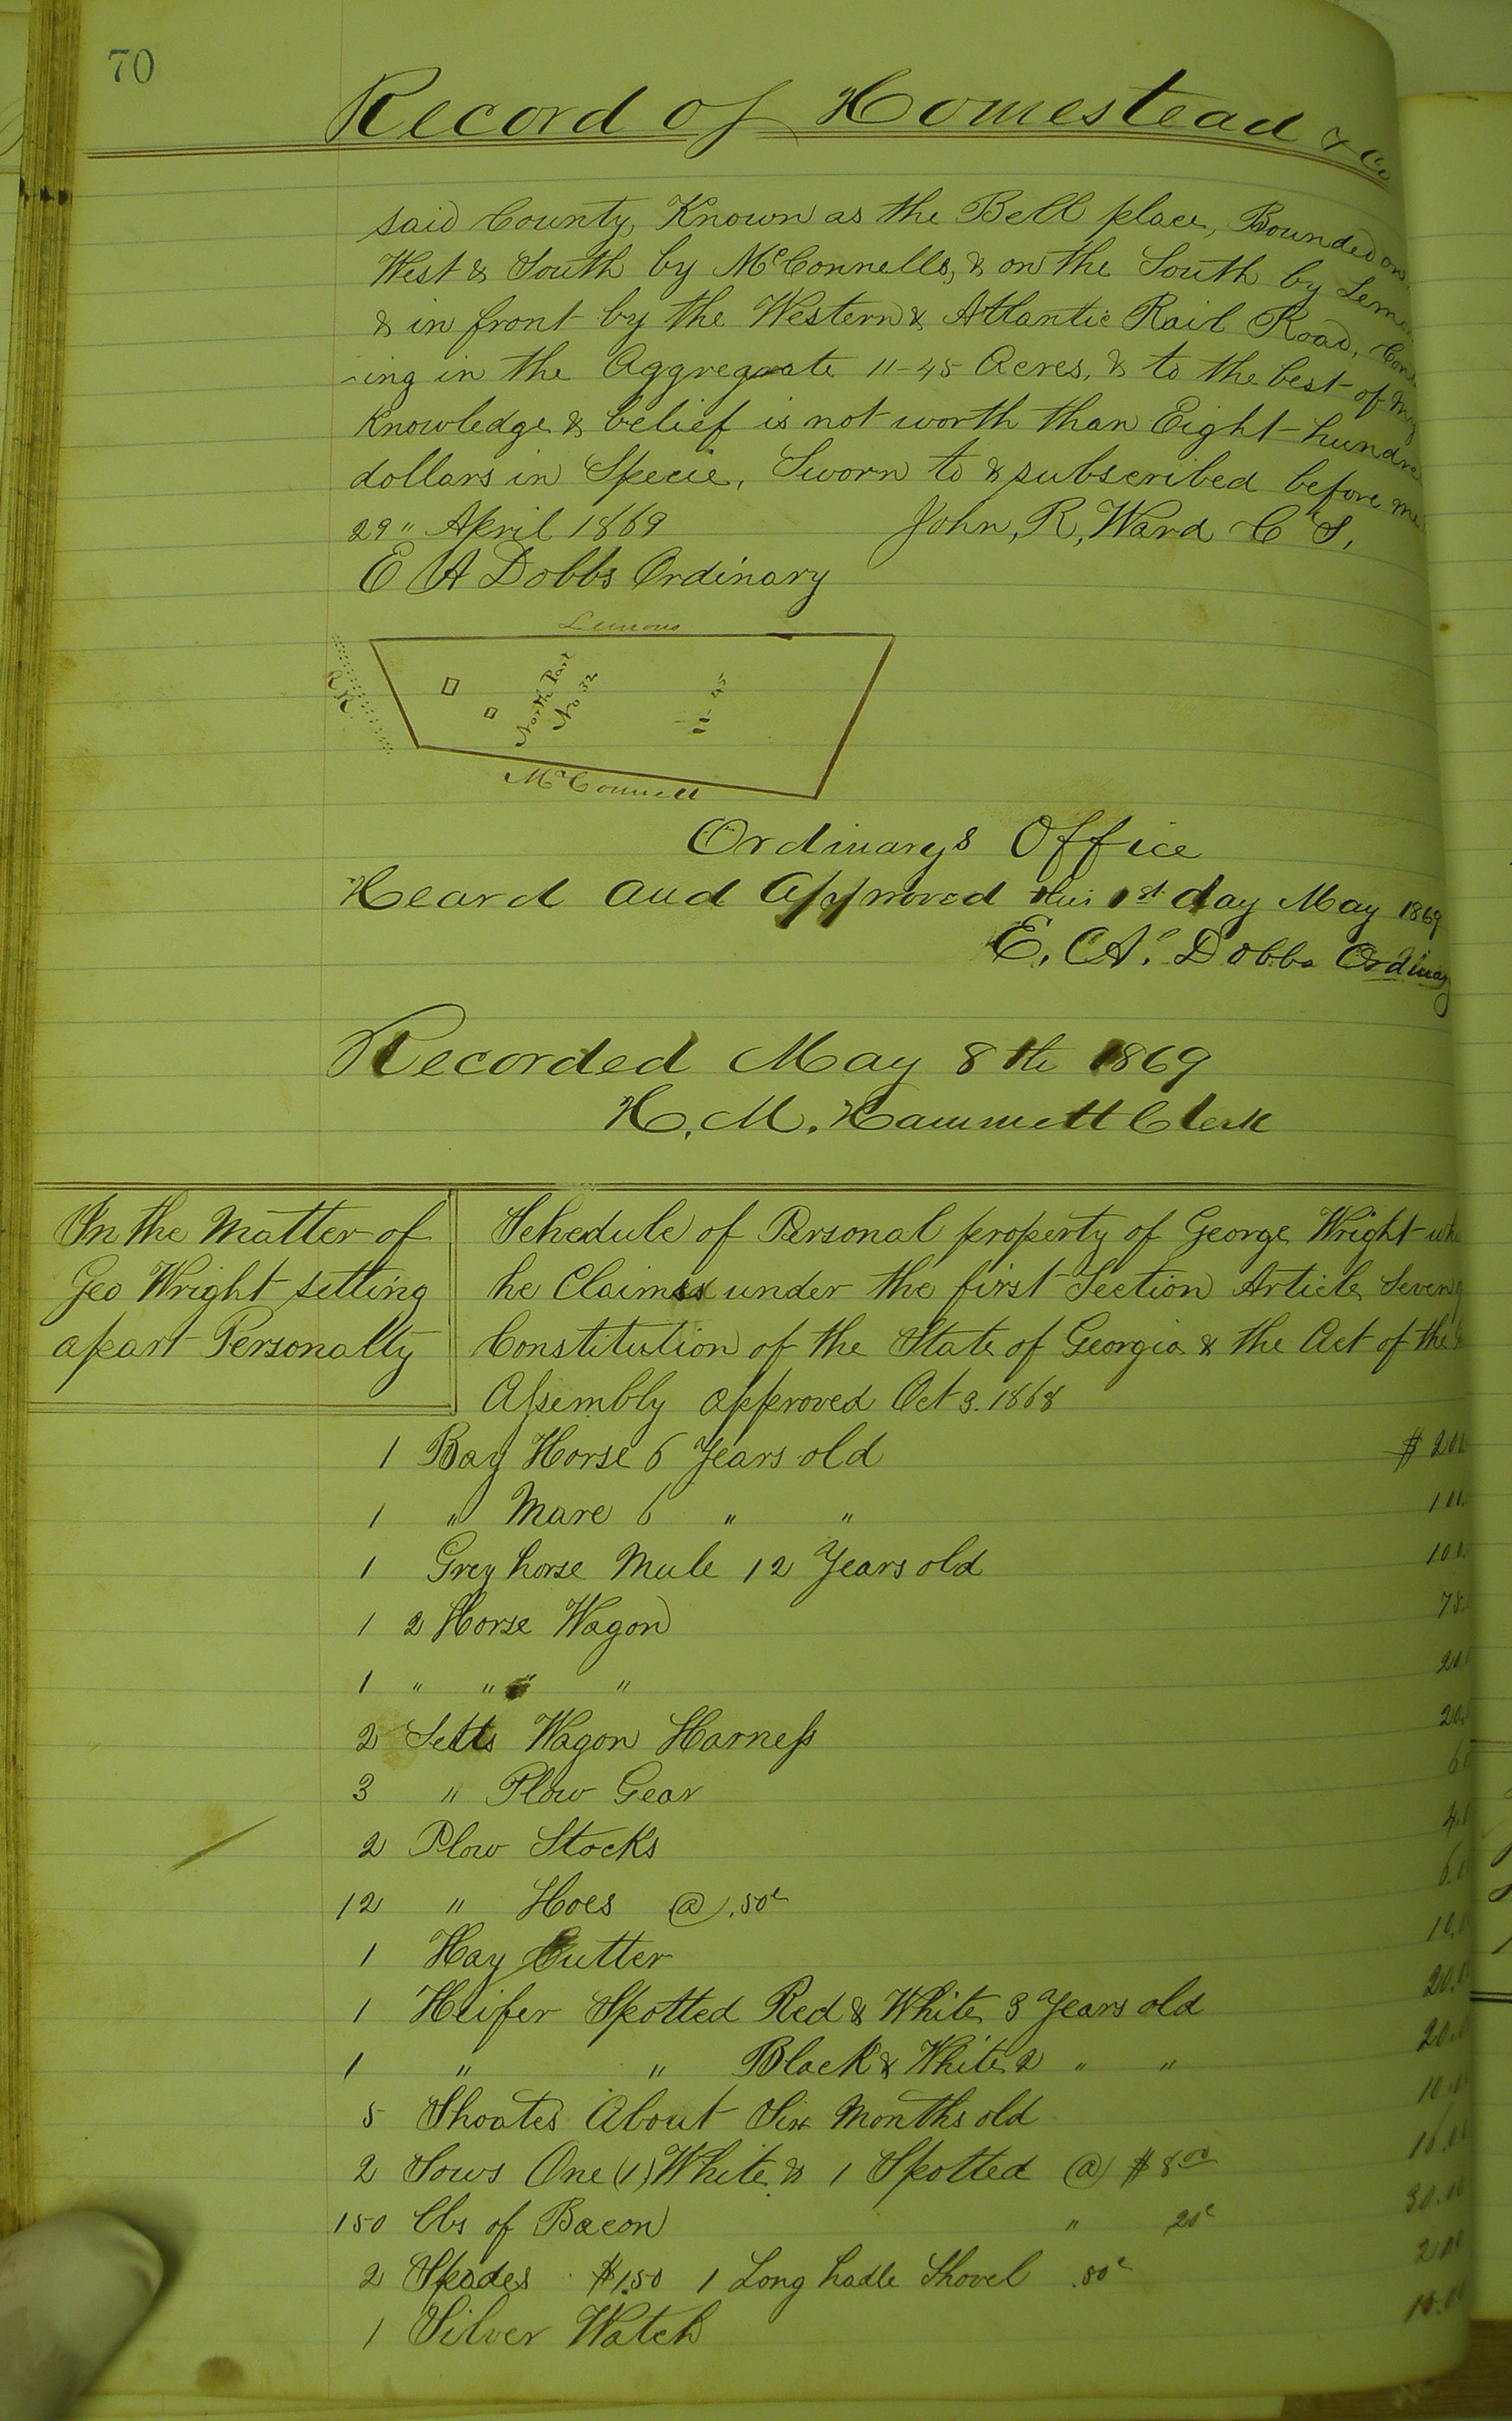 70
Record of Homestead & Co
said County, Known as the Bell place, Bounded on
West & South by McConnells, & on the South by Lemo
& in front by the Western & Atlantic Rail Road, Con
-ing in the Aggregate 11-45 Acres, & to the best of my
Knowledge & belief is not worth than Eight hundre
dollars in Specie, Sworn to & subscribed before me
29" April 1869 John, R, Ward C S,
E A Dobbs Ordinary
Lemons
R R
North Part
No 32
11-45
McConnell
Ordinarys Office
Heard and Approved this 1st day May 1869
E. A. Dobbs Ordinary
Recorded May 8th 1869
H. M. Hammett Clerk
In the Matter of
Geo Wright setting
apart Personalty
Schedule of Personal property of George Wright wh
he Claims under the first Section Article Seven
Constitution of the State of Georgia & the Act of the
Assembly approved Oct 3. 1868
1 Bay Horse 6 Years old $ 200
1 " Mare 6 " " 100
1 Grey horse Mule 12 Years old 100
1 2 Horse Wagon 75
1 " " " 20
2 Setts Wagon Harness 20
3 " Plow Gear 6
2 Plow Stocks 4
12 " Hoes @ .50c 6
1 Hay Cutter 10
1 Heifer Spotted Red & White 3 Years old 20
1 " " Black & White 2 " " 20
5 Shoates About Six Months old 10
2 Sows One (1) White & 1 Spotted @ $8.00 16.00
150 lbs of Bacon " 20c 30.00
2 Spades $1.50 1 Long hadle Shovel .50c 2.00
1 Silver Watch